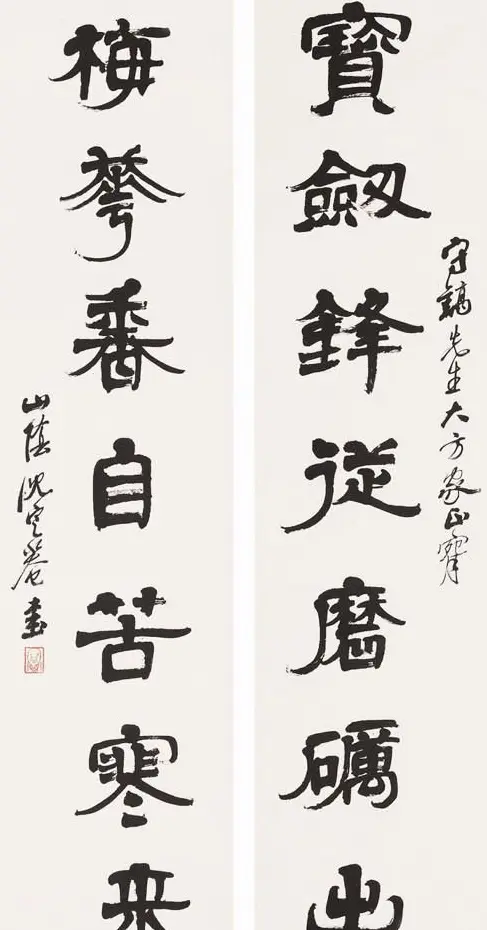 寶劒鋒從磨礪出
守先生大方家正
梅華香自苦寒來
山陰沈定菴書